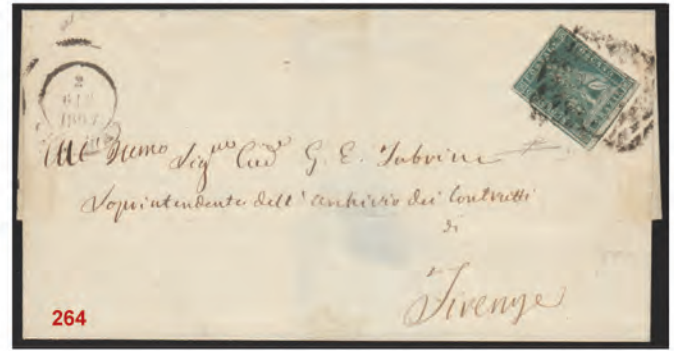 2
GIU
All' Illmo Sigre Cavre G. E. Fabrini
Soprintendente dell' Archivio dei Contratti
di
Firenze
264